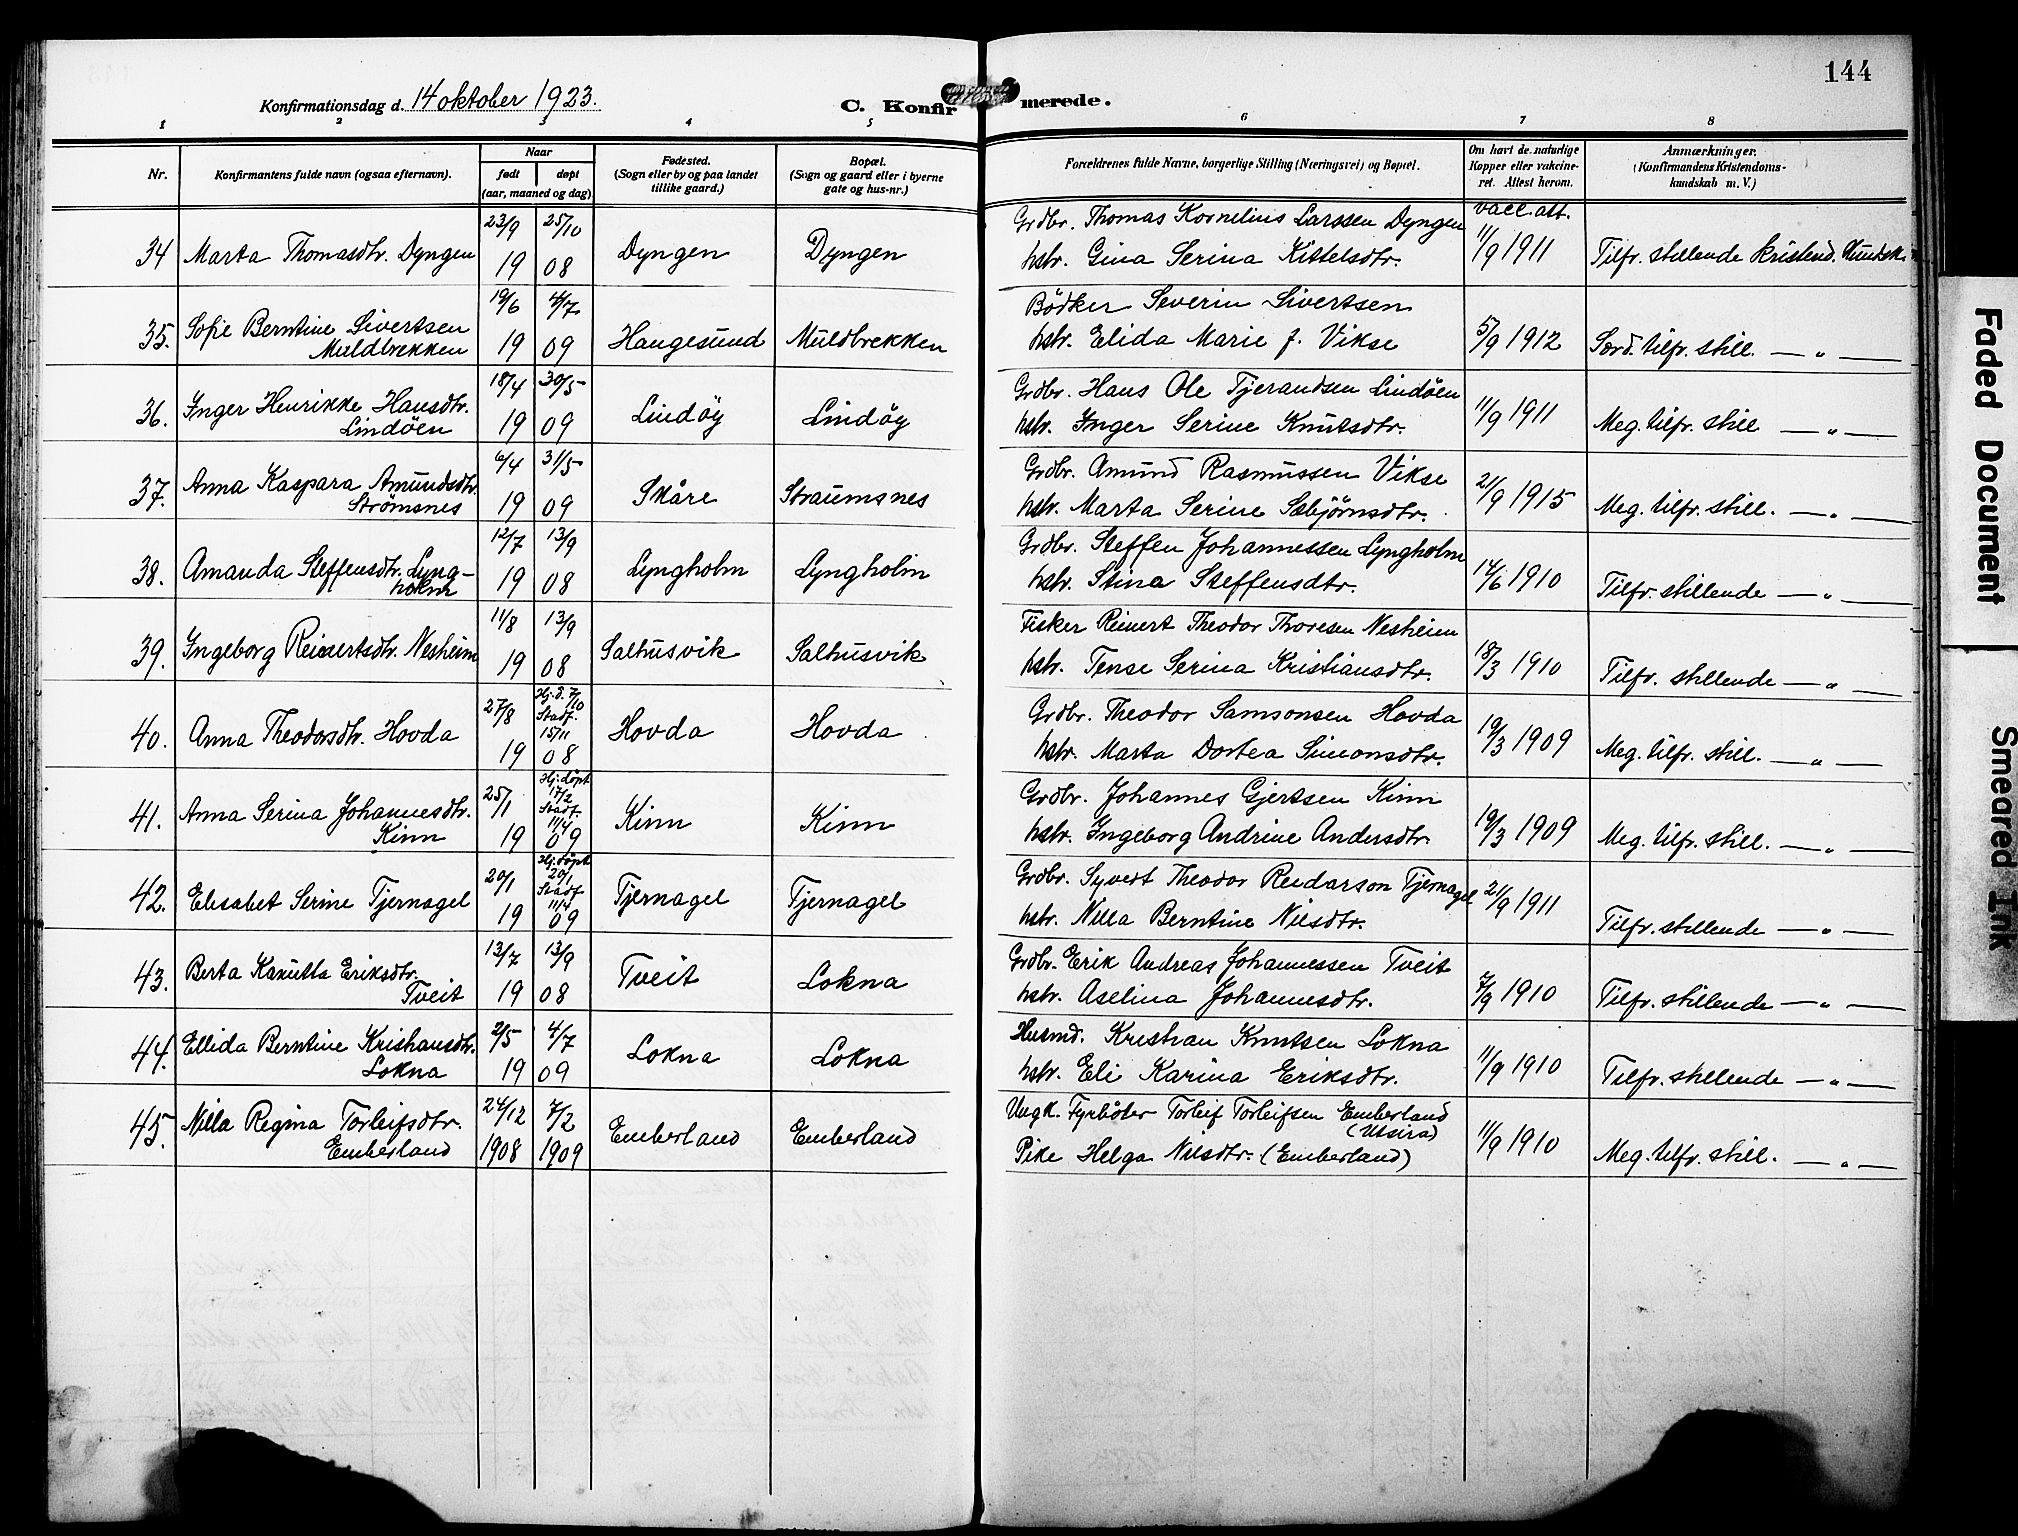 144
Konfirmationsdag d. 14 oktober 1923.
C. Konfirmerede.
1 2 3 4 5 6 7 8
Nr. Konfirmantens fulde navn (ogsaa efternavn). Naar født døpt (aar, maaned og dag) Fødested. (Sogn eller by og paa landet tillike gaard.) Bopæl. (Sogn og gaard eller i byerne gate og hus-nr.) Forældrenes fulde Navne, borgerlige Stilling (Næringsvei) og Bopæl. Om havt de naturlige Kopper eller vakcineret. Attest herom. Anmærkninger. (Konfirmandens Kristendomskundskab m. V.)
23/9 25/10 Grdbr. Thomas Kornelius Larssen Dyngen vacc. att.
34 Marta Thomasdtr. Dyngen 19 08 Dyngen Dyngen hstr. Gina Serina Kittelsdtr. 11/9 1911 Tilfr. stillende kristend. kundsk.
19/6 4/7 Bödker Severin Sivertsen
35. Sofie Berntine Sivertsen Muldbrekken 19 09 Haugesund Muldbrekken hstr. Elida Marie f. Vikse 5/9 1912 Særd. tilfr. still. — „ —
18/4 30/5 Grdbr. Hans Ole Tjerandsen Lindöen
36. Inger Henrikke Hansdtr. Lindöen 19 09 Lindöy Lindöy hstr. Inger Serine Knutsdtr. 11/9 1911 Meg. tilfr. still — „ —
6/4 31/5 Grdbr. Amund Rasmussen Vikse
37. Anna Kaspara Amundsdtr. Strömsnes 19 09 Skåre Straumsnes hstr. Marta Serine Sæbjörnsdtr. 21/9 1915 Meg. tilfr. still. — „ —
12/7 13/9 Grdbr. Steffen Johannessen Lyngholm
38. Amanda Steffensdtr. Lyng-holm 19 08 Lyngholm Lyngholm hstr. Stina Steffensdtr. 14/6 1910 Tilfr. stillende — „ —
11/8 13/9 Fisker Reinert Theodor Thoresen Nesheim
39. Ingeborg Reinertsdtr. Nesheim 19 08 Salhusvik Salhusvik hstr. Tense Serina Kristiansdtr. 18/3 1910 Tilfr. stillende — „ —
27/8 Hj. d. 7/10 Stadf. 15/11 Grdbr. Theodor Samsonsen Hovda
40. Anna Theodorsdtr. Hovda 19 08 Hovda Hovda hstr. Marta Dortea Simonsdtr. 19/3 1909 Meg. tilfr. still. — „ —
25/1 Hj. döpt 17/2 Stadf. 11/4 Grdbr. Johannes Gjertsen Kinn
41. Anna Serina Johannesdtr. Kinn 19 09 Kinn Kinn hstr. Ingeborg Andrine Andersdtr. 19/3 1909 Meg. tilfr. still. — „ —
20/1 Hj. döpt 20/1 Stadf 11/4 Grdbr. Syvert Theodor Reidarson Tjernagel
42. Elisabet Serine Tjernagel 19 09 Tjernagel Tjernagel hstr. Nilla Berntine Nilsdtr. 21/9 1911 Tilfr. stillende — „ —
13/7 13/9 Grdbr. Erik Andreas Johannessen Tveit
43. Berta Knutta Eriksdtr. Tveit 19 08 Tveit Lokna hstr. Aselina Johannesdtr. 7/9 1910 Tilfr. stillende — „ —
2/5 4/7 Husmd. Kristian Knutsen Lokna
44. Ellida Berntine Kristiansdtr. Lokna 19 09 Lokna Lokna hstr. Eli Karina Eriksdtr. 11/9 1910 Tilfr. stillende — „ —
24/12 7/2 Ungk. Fyrböter Torleif Torleifsen Emberland (Utsira)
45. Nilla Regina Torleifsdtr. Emberland 1908 1909 Emberland Emberland Pike Helga Nilsdtr. (Emberland) 11/9 1910 Meg. tilfr. still. — „ —
Faded Document
Smeared Ink